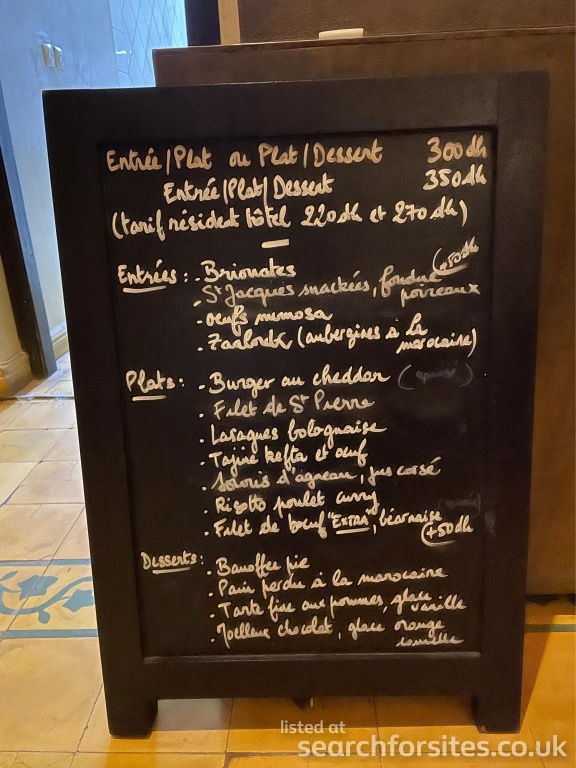 Entrée/Plat ou Plat/Dessert 300dh
Entrée/Plat/Dessert 350dh
(tarif résident hôtel 220dh et 270dh)
Entrées: . Briouates (+50dh
. St Jacques snackées, fondue
poireaux
. oeufs mimosa
. Zaalouk (aubergines à la
marocaine)
Plats: . Burger au cheddar (épuisé)
. Filet de St Pierre
. Lasagnes bolognaise
. Tajine kefta et oeuf
. Souris d'agneau, jus corsé
. Risotto poulet curry
. Filet de boeuf "EXTRA", béarnaise
(+50dh
Desserts: . Banoffee pie
. Pain perdu à la marocaine
. Tarte fine aux pommes, glace
vanille
. Moelleux chocolat, glace orange
cannelle
listed at
searchforsites.co.uk